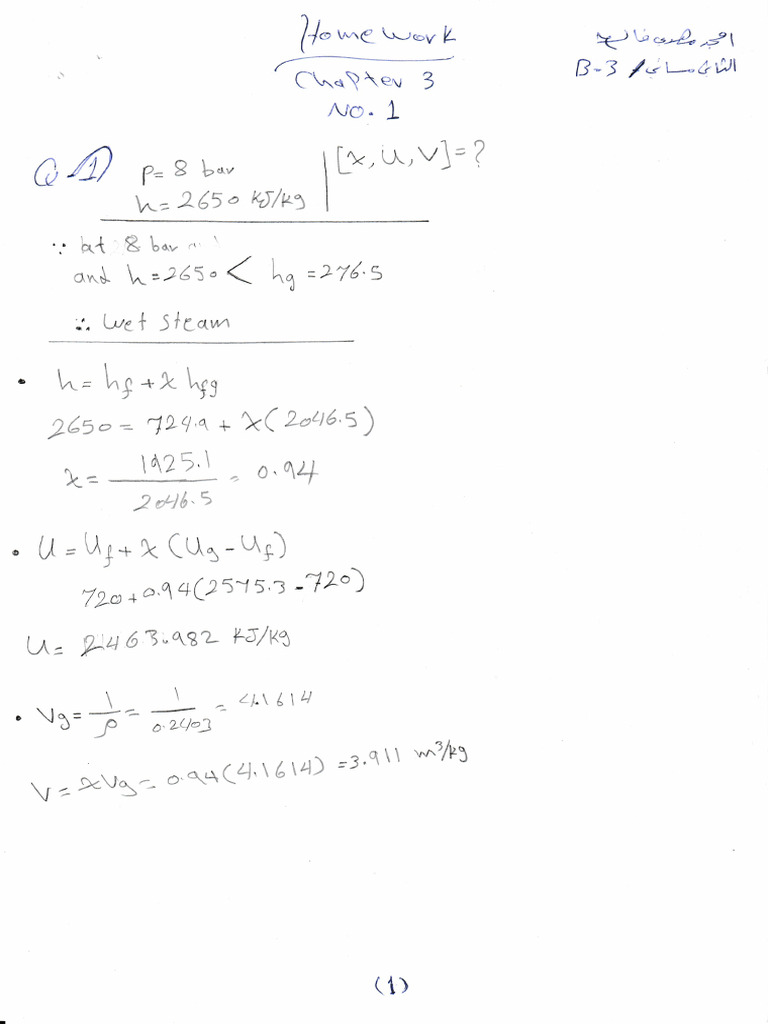 Homework
Chapter 3
No. 1
الثاني مسائي / B-3
Q1 P= 8 bar [x, u, v]=?
h=2650 KJ/kg
∵ at 8 bar
and h=2650 < hg=276.5
∴ Wet Steam
• h= hf + x hfg
2650 = 724.9 + x(2046.5)
x = 1925.1 / 2046.5 = 0.94
• U = Uf + x (Ug - Uf)
720+0.94(2575.3-720)
U= 2463.982 KJ/kg
• Vg = 1/ρ = 1/0.2403 = 4.1614
V= xVg = 0.94(4.1614) =3.911 m³/kg
(1)